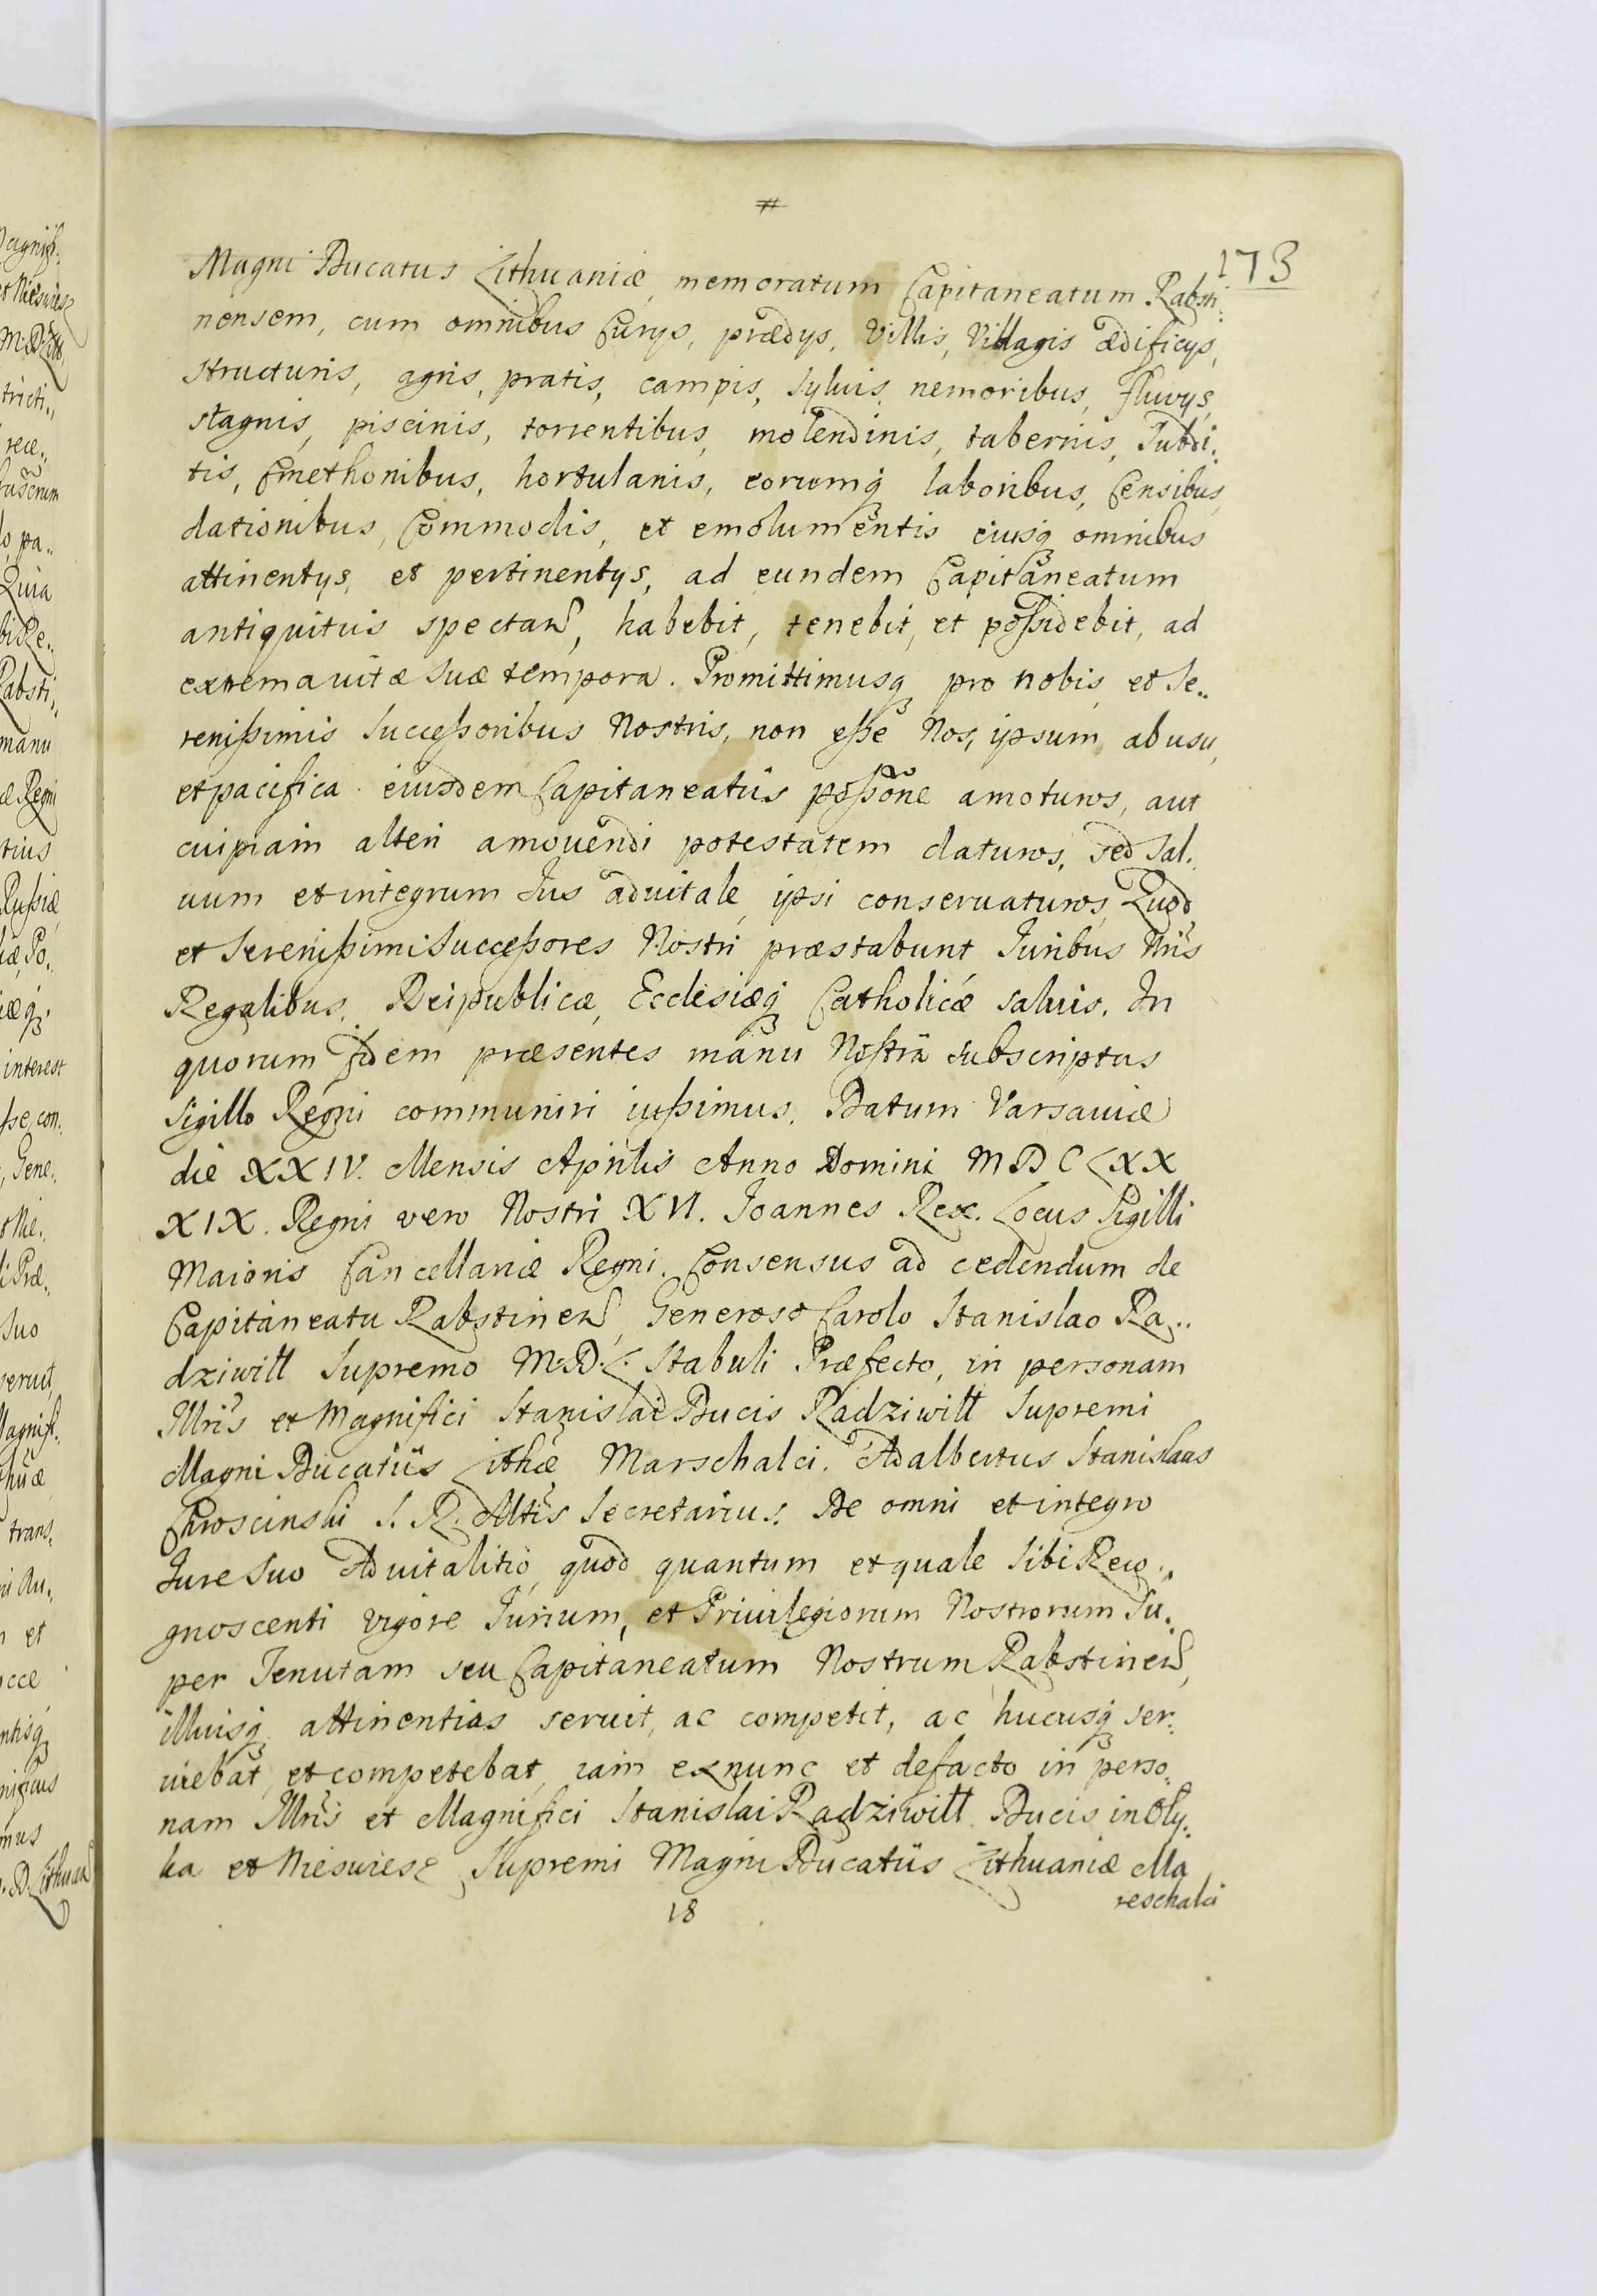 #
173
Magni Ducatus Lithuaniæ, memoratum Capitaneatum Rabsti.
nensem, cum omnibus Curijs, prædijs, Villis, Villagis ædificijs,
structuris, agris, pratis, campis, sylvis, nemoribus, fluvijs,
stagnis, piscinis, torrentibus, molendinis, tabernis, Subdi.
tis, Cmethonibus, hortulanis, eorumq̨ laboribus, Censibus,
dationibus, Commodis, et emolumentis eiusq̨ omnibus
attinentijs, et pertinentijs, ad eundem Capitaneatum
antiquitus spectan̄, habebit, tenebit, et possidebit, ad
extrema vitæ suæ tempora. Promittimusq̨ pro nobis, et Se..
renißimis Succeßoribus Nostris, non eße Nos, ipsum, ab usu,
et pacifica eiusdem Capitaneatûs poßone amoturos, aut
cuipiam alteri amouendi potestatem daturos, sed Sal.
uum et integrum Jus aduitale, ipsi conseruaturos, Quod
et Serenißimi Succeßores Nostri præstabunt Juribus Nris
Regalibus, Reipublicæ, Ecclesiæq̨ Catholicæ saluis. In
quorum fidem præsentes manu Nostra subscriptas
Sigillo Regni communiri iußimus. Datum Varsauiæ
die XXIV. Mensis Aprilis Anno Domini MDCLXX
XIX. Regni vero Nostri XVI. Joannes Rex. Locus Sigilli
Maioris Cancellariæ Regni. Consensus ad cedendum de
Capitaneatu Rabstinen̄, Generoso Carolo Stanislao Ra..
dziwiłł Supremo M.D.L. Stabuli Præfecto, in personam
Illris et Magnifici Stanislai Ducis Radziwiłł Supremi
Magni Ducatûs Lithæ Marschalci. Adalbertus Stanislaus
Chroscinski S. R. Mtis Secretarius. De omni et integro
Jure Suo Aduitalitio, quod quantum et quale Sibi Reco..
gnoscenti vigore Jurium, et Priuilegiorum Nostrorum Su.
per Tenutam seu Capitaneatum Nostrum Rabstinen̄,
illiusq̨ attinentias seruit, ac competit, ac hucusq̨ ser.
uiebat, et competebat, iam exnunc et defacto in perso.
nam Illris et Magnifici Stanislai Radziwiłł Ducis in Oly.
ka et Nieswiesz Supremi Magni Ducatûs Lithuaniæ Ma
reschalci
18